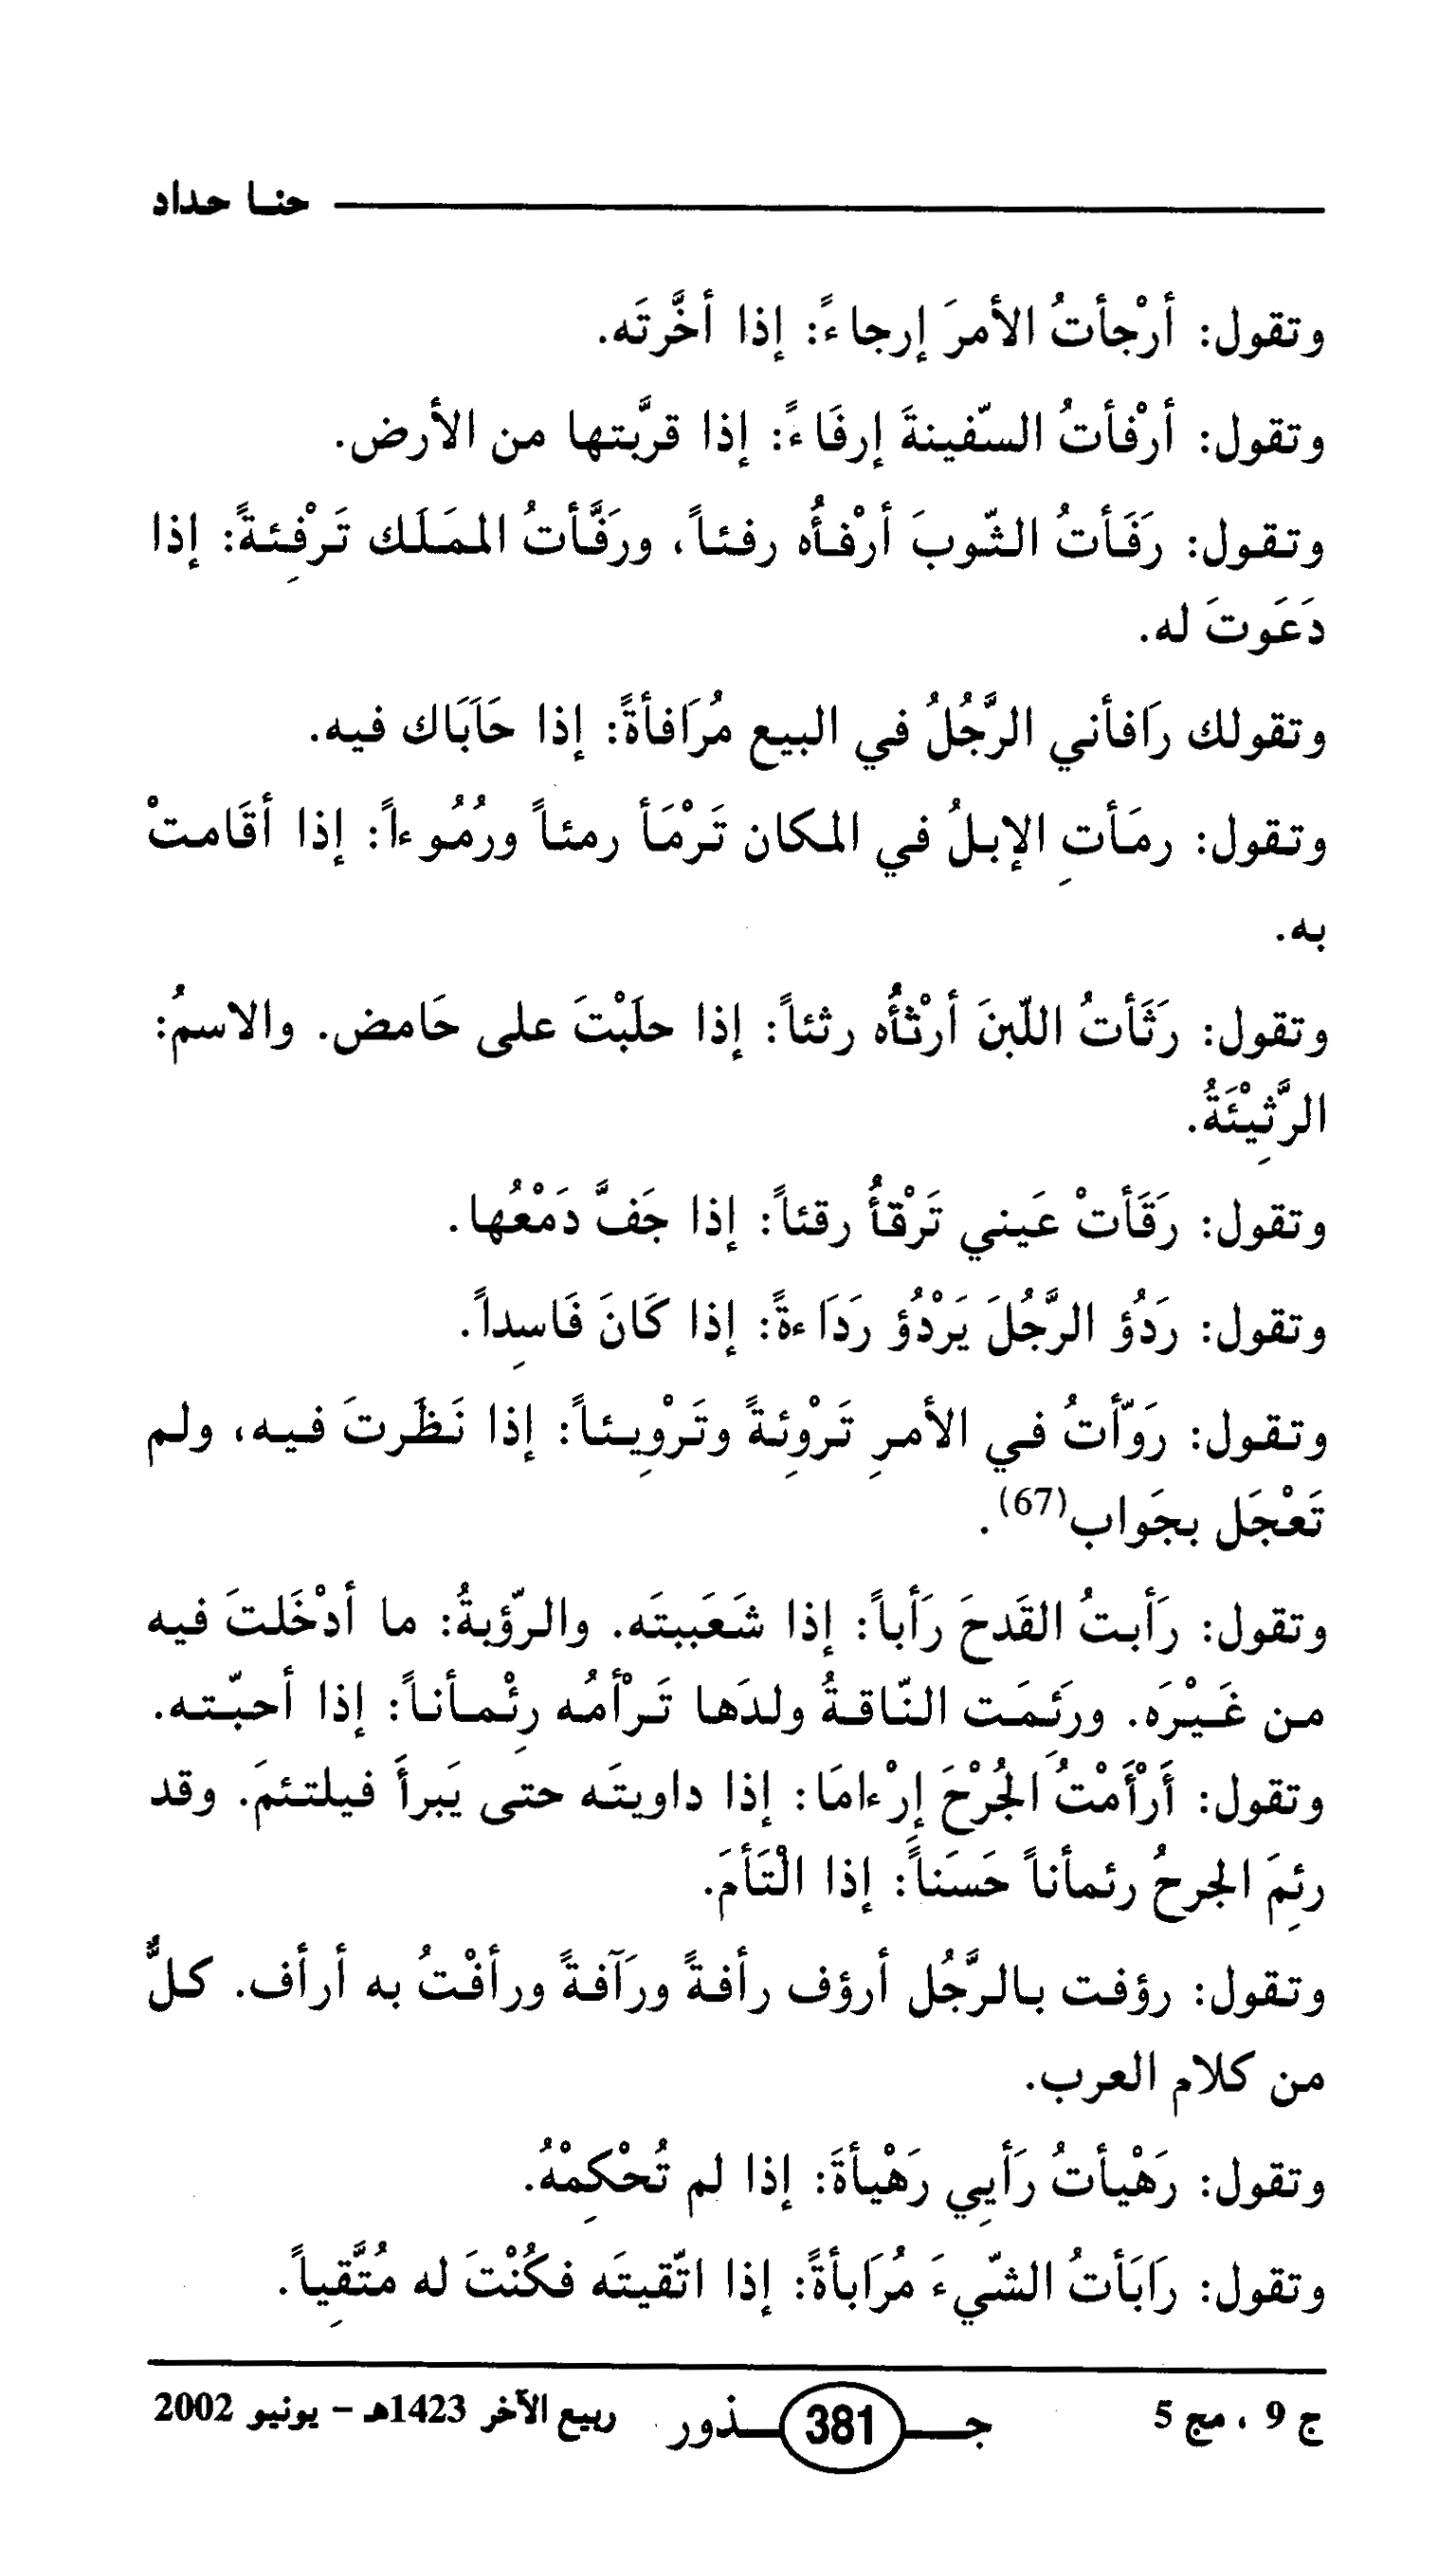 حنا حداد
وتقول: أرْجأتُ الأمرَ إرجاءً: إذا أخَّرتَه.
وتقول: أرْفأتُ السّفينةَ إرفَاءً: إذا قرَّبتها من الأرض.
وتقول: رَفَأتُ الثّوبَ أرْفأُه رفئاً، ورَفَّأتُ الممَلَك تَرْفِئةً: إذا
دَعَوتَ له.
وتقولك رَافأني الرَّجُلُ في البيع مُرَافأةً: إذا حَابَاك فيه.
وتقول: رمَأتِ الإبلُ في المكان تَرْمَأ رمئاً ورُمُوءاً: إذا أقَامتْ
به.
وتقول: رَثَأتُ اللّبنَ أرْثأُه رثئاً: إذا حلَبْتَ على حَامض. والاسمُ:
الرَّثِيْئَةُ.
وتقول: رَقَأتْ عَيني تَرْقأُ رقئاً: إذا جَفَّ دَمْعُها.
وتقول: رَدُؤ الرَّجُلَ يَرْدُؤ رَدَاءةً: إذا كَانَ فَاسِداً.
وتقول: رَوّأتُ في الأمرِ تَرْوِئةً وتَرْوِيئاً: إذا نَظَرتَ فيه، ولم
تَعْجَل بجَواب(67).
وتقول: رَأبتُ القَدحَ رَأباً: إذا شَعَببتَه. والرّؤبةُ: ما أدْخَلتَ فيه
من غَيْرَه. ورَئمَت النّاقةُ ولدَها تَرْأمُه رِئْمأناً: إذا أحبّته.
وتقول: أَرْأَمْتُ الجُرْحَ إرْءامَا: إذا داويتَه حتى يَبرأَ فيلتئمَ. وقد
رئِمَ الجرحُ رئمأناً حَسَناً: إذا الْتَأمَ.
وتقول: رؤفت بالرَّجُل أرؤف رأفةً ورَآفةً ورأفْتُ به أرأف. كلٌّ
من كلام العرب.
وتقول: رَهْيأتُ رَأيِي رَهْيأةَ: إذا لم تُحْكِمْهُ.
وتقول: رَابَأتُ الشّيءَ مُرَابأةً: إذا اتّقيتَه فكُنْتَ له مُتَّقِياً.
ج 9 ، مج 5 جـــذور 381 ربيع الآخر 1423هـ - يونيو 2002